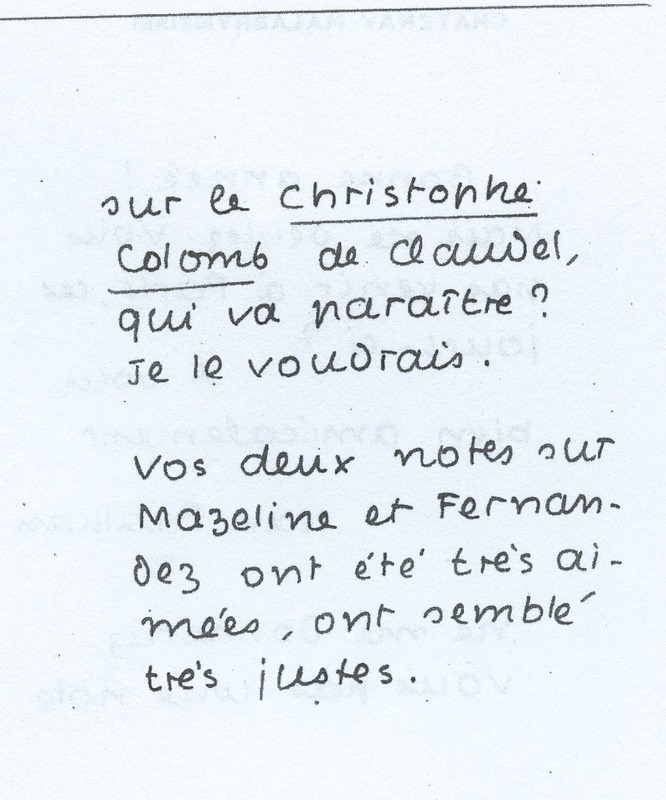 sur le Christophe
Colomb de Claudel,
qui va paraître ?
Je le voudrais.
Vos deux notes sur
Mazeline et Fernan-
dez ont été très ai-
mées, ont semblé
très justes.